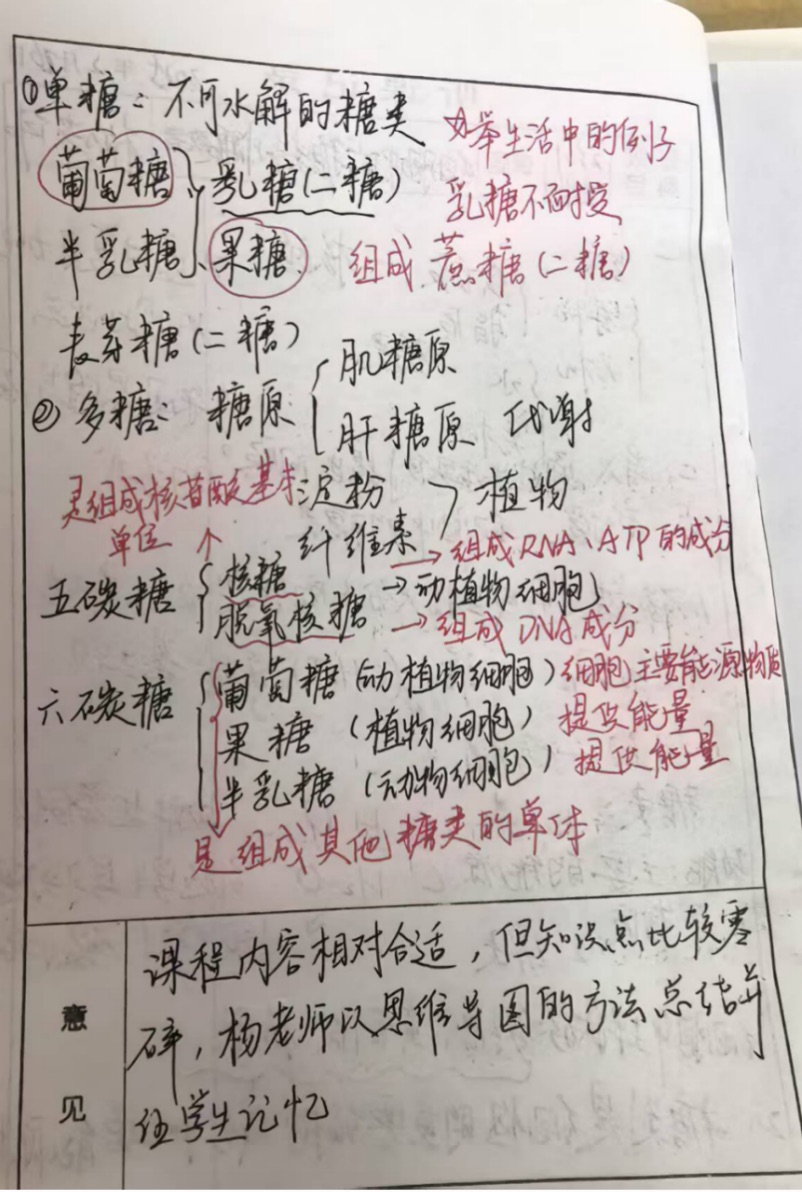 ①单糖：不可水解的糖类 如举生活中的例子
葡萄糖 、乳糖(二糖) 乳糖不耐受
半乳糖、果糖. 组成 蔗糖(二糖)
麦芽糖(二糖)
②多糖：糖原 肌糖原
肝糖原 代谢
是组成核苷酸基本 淀粉 植物
单位 ↑ 纤维素 →组成RNA、ATP的成分
五碳糖 核糖 →动植物细胞
脱氧核糖 →组成DNA成分
六碳糖 葡萄糖(动植物细胞)细胞主要能源物质
果糖 (植物细胞) 提供能量
半乳糖 (动物细胞) 提供能量
是组成其他糖类的单体
意见
课程内容相对合适，但知识点比较零
碎，杨老师以思维导图的方法总结并
让学生记忆